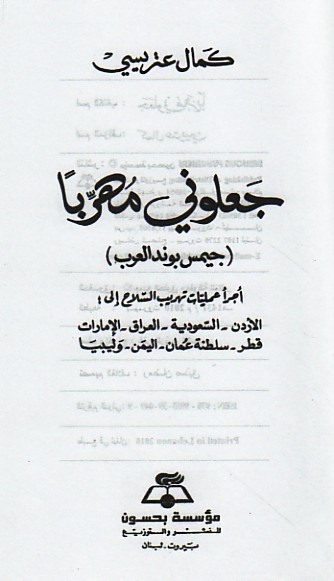 كمال عتريسي
جعلوني مهرّبًا
(جيمس بوند العرب)
أجرأ عمليات تهريب السلاح إلى:
الأردن - السعودية - العراق - الإمارات
قطر - سلطنة عُمان - اليمن - وليبيا
مؤسسة بحسون
للنشر والتوزيع
بيروت - لبنان